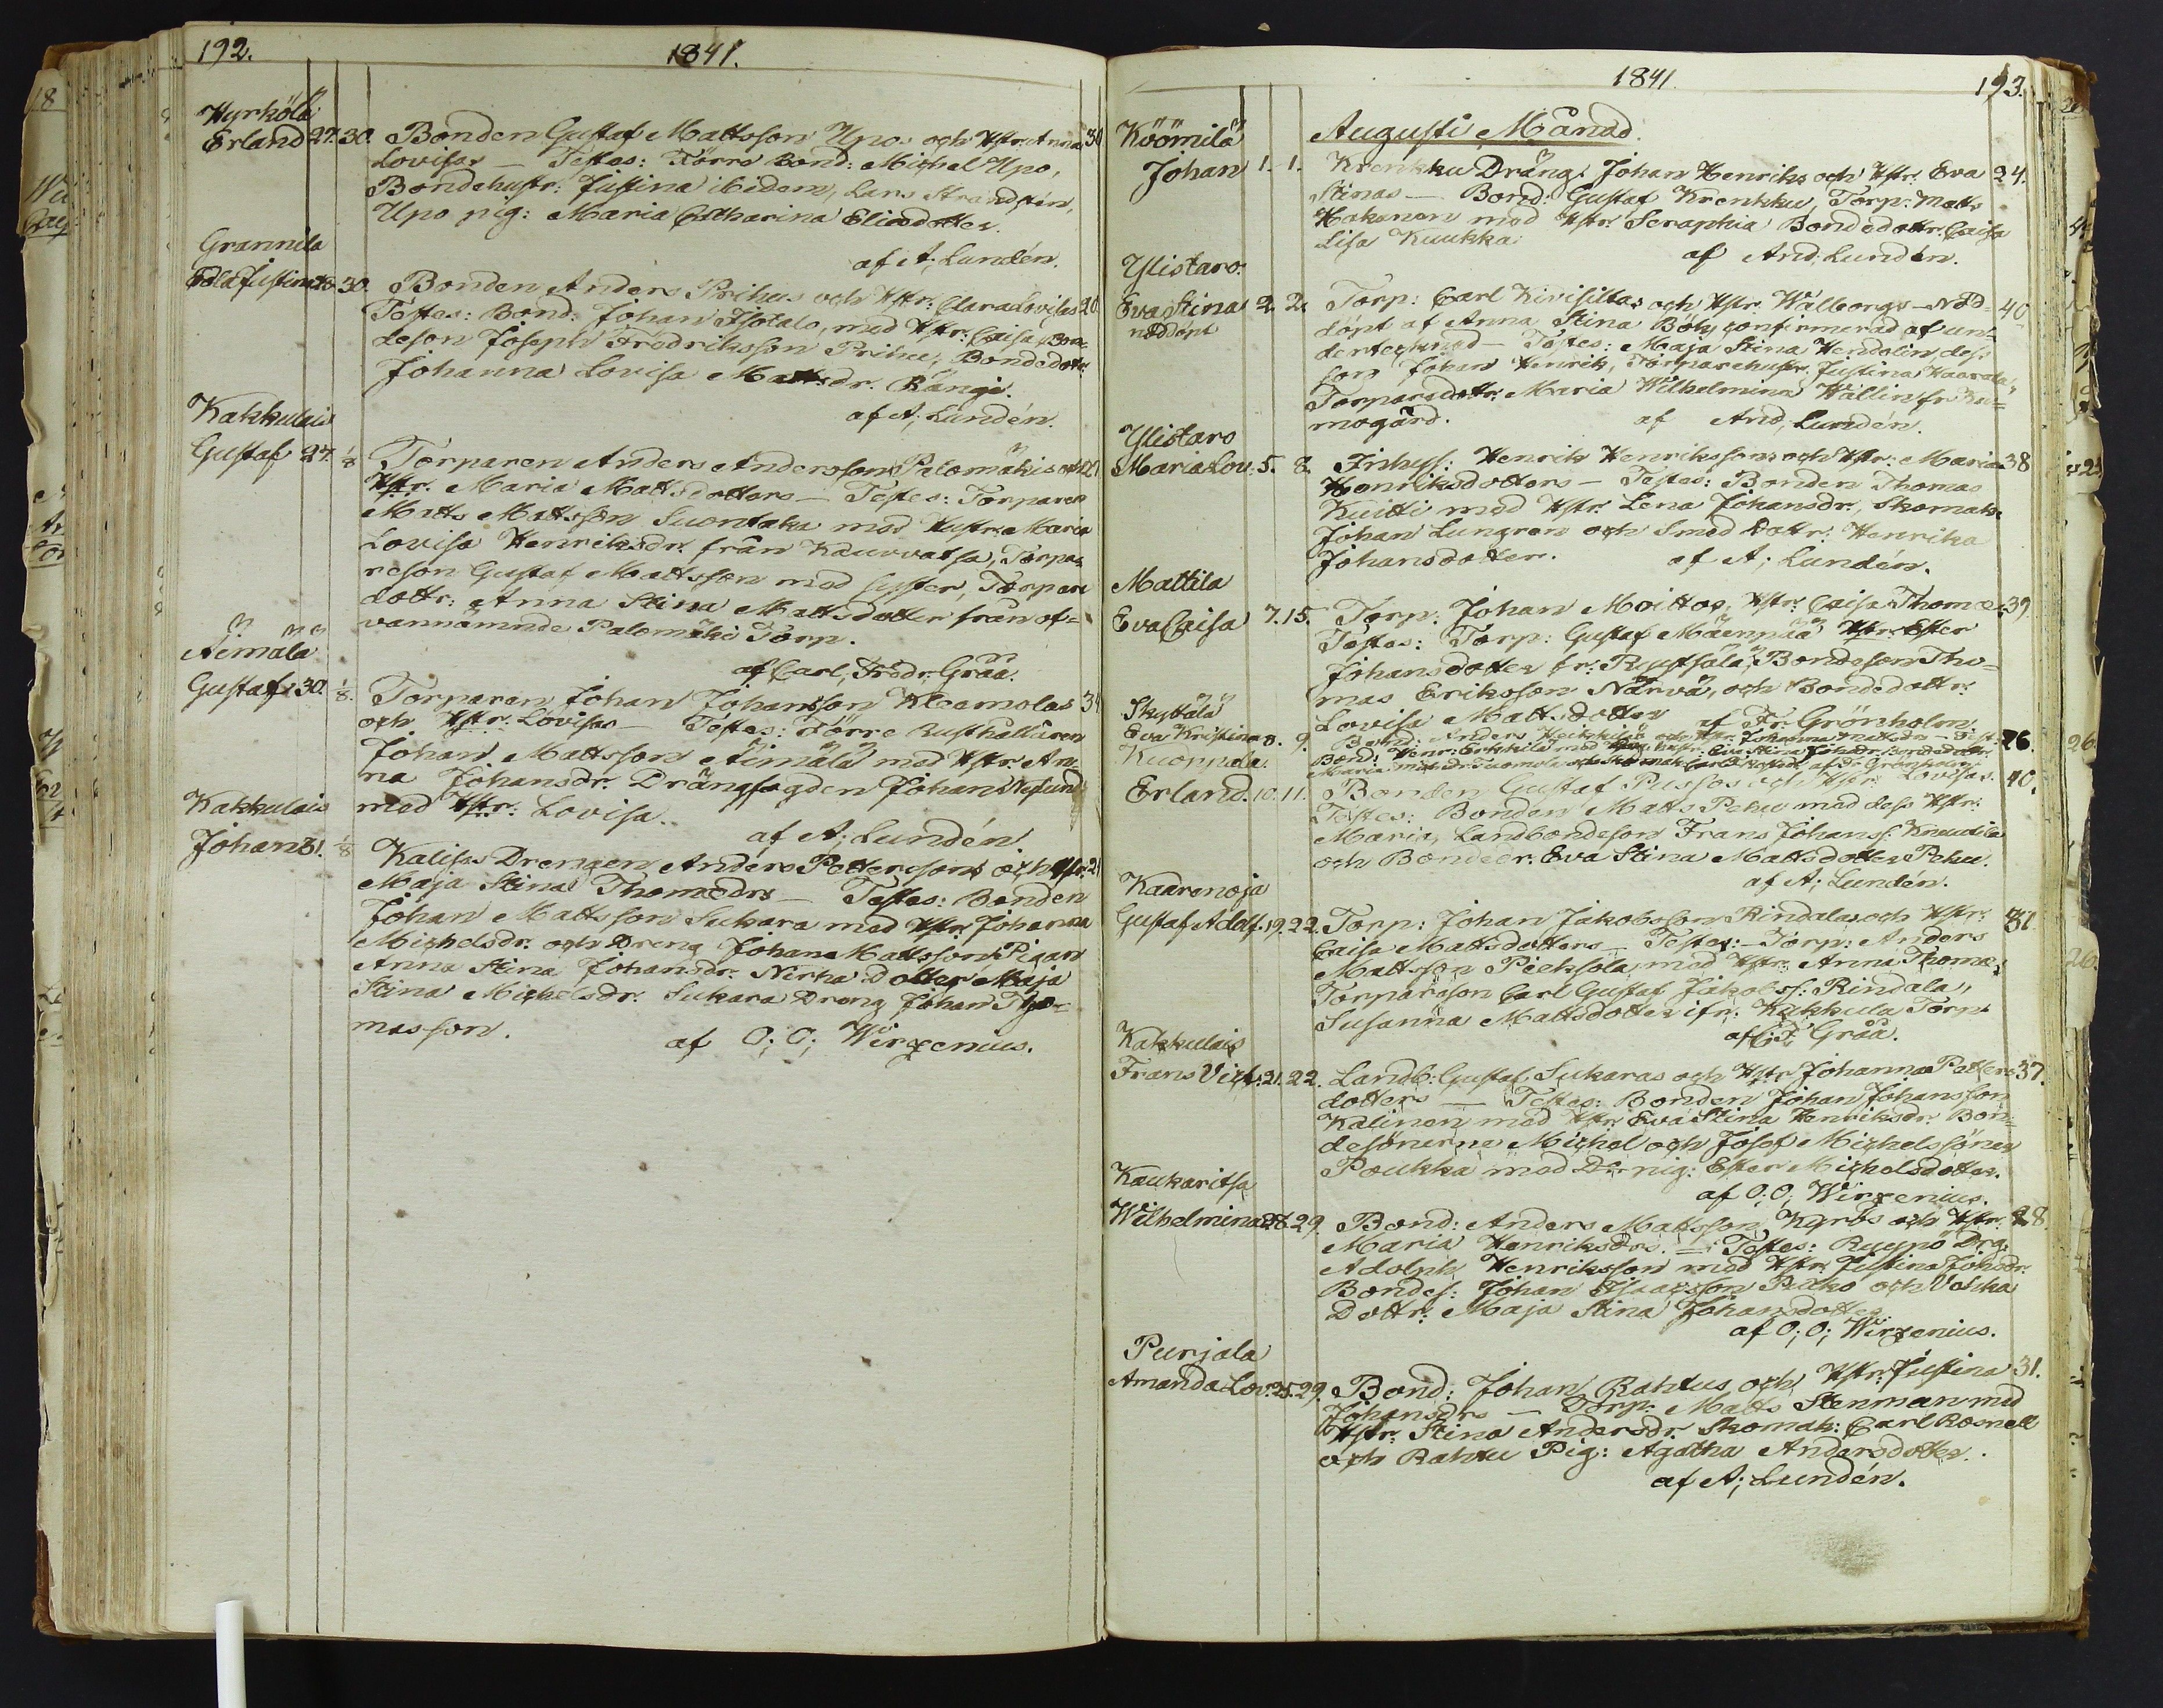 192.
1841.
Hyrkölä
Erland 27. 30. Bonden Gustaf Mattsson Upo. och Hstr. Anna 30
Lovisas — Testes: Förre Bond: Michel Upo,
Bondehustr: Justina ibidem, Lars Strandstén,
Upo pig: Maria Catharina Eliedotter.
af A; Lundén.
Grannila
Edla Justina 28. 30. Bonden Anders Prihus och Hstr: Clara Lovisas 20.
Testes: Bond: Johan Isotalo, med Hstr: Caisa, Bon
deson Joseph Fredriksson Prihu, Bondedotr:
Johanna Lovisa Mattsdr. Rängi.
af A; Lundén.
Kakkulais
Gustaf 27. 1/8 Torparen Anders Andersson Palomäkis och 27
Hstr. Maria Mattsdotters — Testes: Torparen
Matts Mattsson Suontaka med Hustr. Maria
Lovisa Henriksdr. från Kauvvatsa, Torpa
reson Gustaf Mattsson med Syster, Torpare
dottr: Anna Stina Mattsdotter från of=
vannämnde Palomäki Torp.
af Carl, Fredr. Gråå.
Äimälä
Gustaf 30. 1/8. Torparen Johan Johansson Klemolas 34
och Hstr. Lovisas — Testes: Förre Rusthållaren
Johan Mattsson Äimälä med Hstr. An
na Johansdr. Drängfogden Johan Nysund
med Hstr: Lovisa.
af A; Lundén.
Kakkulais
Johan 31. 1/8 Kalisas Drengen Anders Pettersons och Hstr. 21
Maja Stina Thomædrs — Testes: Bonden
Johan Mattsson Sukara med Hstr. Johanna
Michelsdr. och Dreng Johan Mattsson Pigan
Anna Stina Johansdr. Nirha Dotter Maja
Stina Michelsdr. Sukara Dreng Johan Tho=
masson.
af O; O; Wirzenius.
1841.
193.
Augusti Månad.
Köömilä
Johan 1. 1. Krenkku Drängs Johan Henriks och Hstr. Eva 24.
Stinas — Bond: Gustaf Krenkku, Torp: Matts
Hakanen med Hstr. Seraphia Bondedottr. Caisa
Lisa Kuukka
af And; Lundén.
Ylistaro.
Eva Stina 2. 2. Torp: Carl Kivisiltas och Hstr. Walborgs — Nöd= 40
nöddöpt
döpt af Anna Stina Böök, confirmerad af un=
dertecknad — Testes: Maja Stina Hendolin, dess
son Johan Henrik, Torparehustr. Justina Haarala,
Torparedottr. Maria Wilhelmina Wallin fr. Ku=
mogård.
af And; Lundén.
Ylistaro
Maria Lou. 5. 8. Inhys: Henrik Henrikssons och Hstr: Maria 38
Henriksdotters — Testes: Bonden Thomas
Kuitti med Hstr. Lena Johansdr, Skomak.
Johan Lungren och Smed Dottr: Henrika
Johansdotter.
af A; Lundén.
Mattila
Eva Caisa 7. 15. Torp: Johan Moittos, Hstr. Caisa Thomæ 39
Testes: Torp: Gustaf Mäenpää Hstr. Ester
Johansdotter fr. Ruotsälä, Bondeson Tho=
mas Eriksson Närvä, och Bondedottr:
Lovisa Mattsdotter af Fr. Grönholm.
Skyttälä
Eva Kristina 8. 9. Bond: Anders Heikkilä och Hstr. Johanna Mattsdrs — Test: 26.
Bond: Henr: Erkkilä med Hustr. Eva Stina Johsdr. Bondedottr:
Maria Mattsdr. Tuomola af Fr Grönholm
Kuoppala
Erland. 10. 11. Bonden Gustaf Pussos och Hstr. Lovisas. 40.
Testes: Bonden Matts Peku med dess Hstr.
Maria, Landbondeson Frans Johanss. Knuutila
och Bondedr. Eva Stina Mattsdotter Peku.
af A; Lundén.
Kaarenoja
Gustaf Adolf. 19. 22. Torp: Johan Jakobsson Rindalas och Hstr: 31.
Caisa Mattsdotters — Testes: Torp: Anders
Mattsson Pieksola, med Hstr. Anna Thomæ,
Torpareson Carl Gustaf Jakobss: Rindala,
Susanna Mattsdotter ifr. Kakkula Torp:
af C; F; Gråå.
Kakkulais
Frans Vict. 21. 22. Landb: Gustaf Sukaras och Hstr. Johanna Petters 37.
dotters — Testes: Bonden Johan Johansson
Kalinen med Hstr Eva Stina Henriksdr. Bon=
desönerne Michel och Josef Michelssöner
Poukka med D:o pig: Ester Michelsdotter.
af O; O; Wirzenius.
Kaukaritsa
Wilhelmina 28. 29. Bond: Anders Mattsson Kyrös och Hstr. 28.
Maria Henriksdrs. — Testes: Ruupö Drg.
Adolph Henriksson med Hstr. Justina Johsdr.
Bondes: Johan Isaacsson Pako och Uotika
Dottr: Maja Stina Johansdotter
af O; O; Wirzenius.
Purjala
Amanda Lov. 25. 29. Bond: Johan Rahtus och Hstr. Justina 31.
Johansdrs — Torp: Matts Stenman med
Hstr: Stina Andersdr. Skomak: Carl Rosnell
och Rahtu Pig: Agatha Andersdotter.
af A; Lundén.